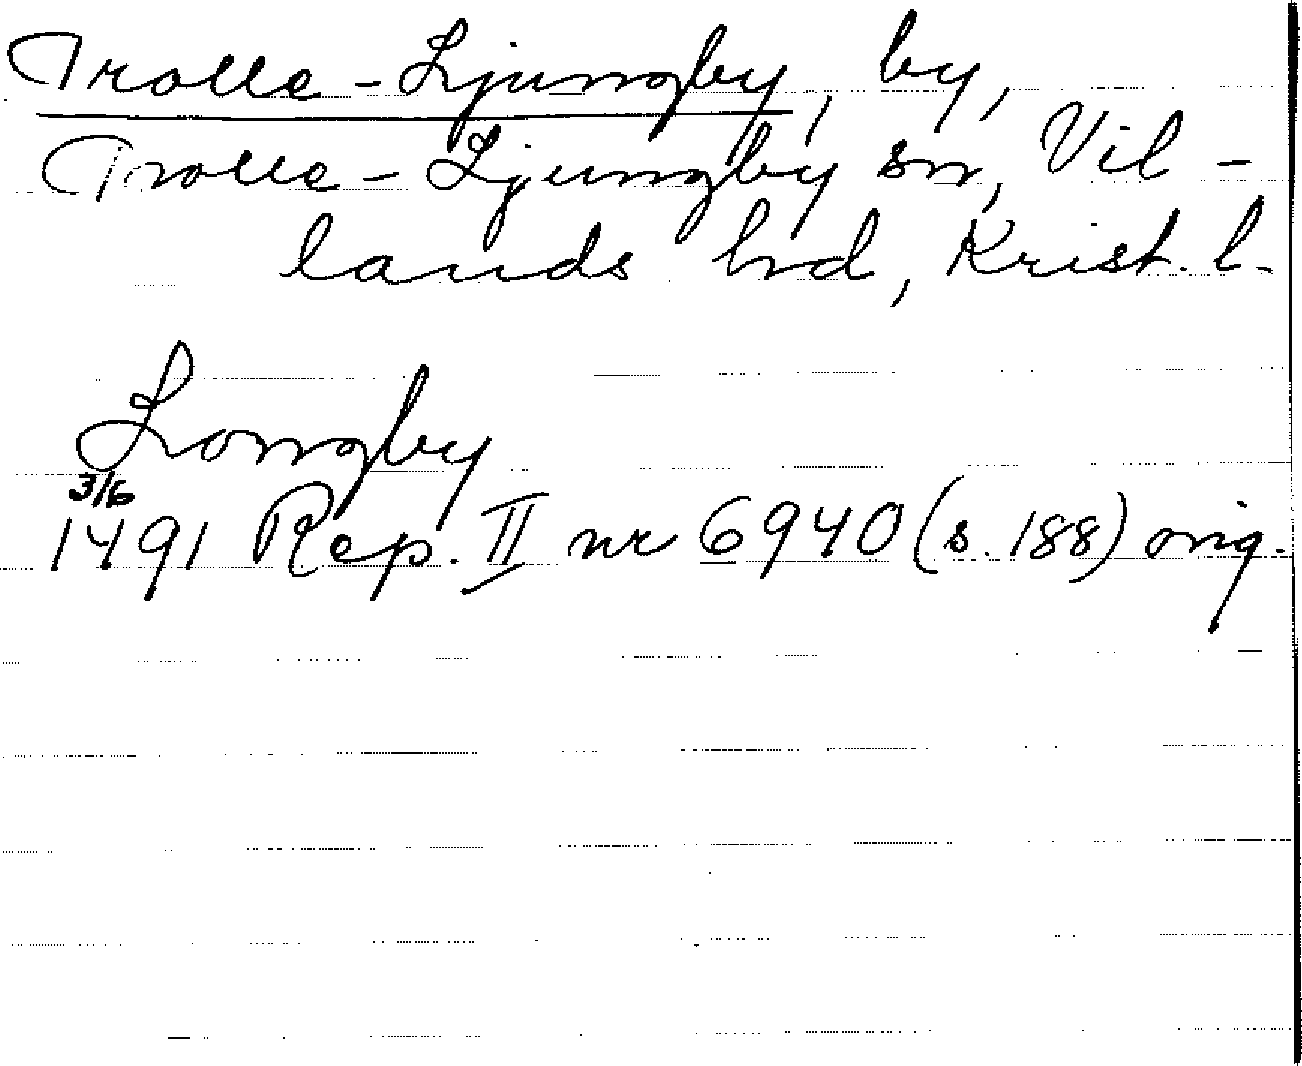 Trolle-Ljungby, by,
Trolle-Ljungby sn, Vil-
lands hd, Krist. l.
Longby
3/6
1491 Rep. II nr 6940 (s. 188) orig.